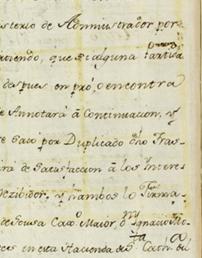 isterio de Administrador por
poviendo, que si alguna partida
despues en pró, ô en contra
se Annotará â Continuacion, y
se sacó por Duplicado dho Tras
ra de Satisfaccion â los Interes
Recibidor, y hambos lo firma
de Sousa Cavo. Maior, Dn Ignacio
ces en esta Hacienda de